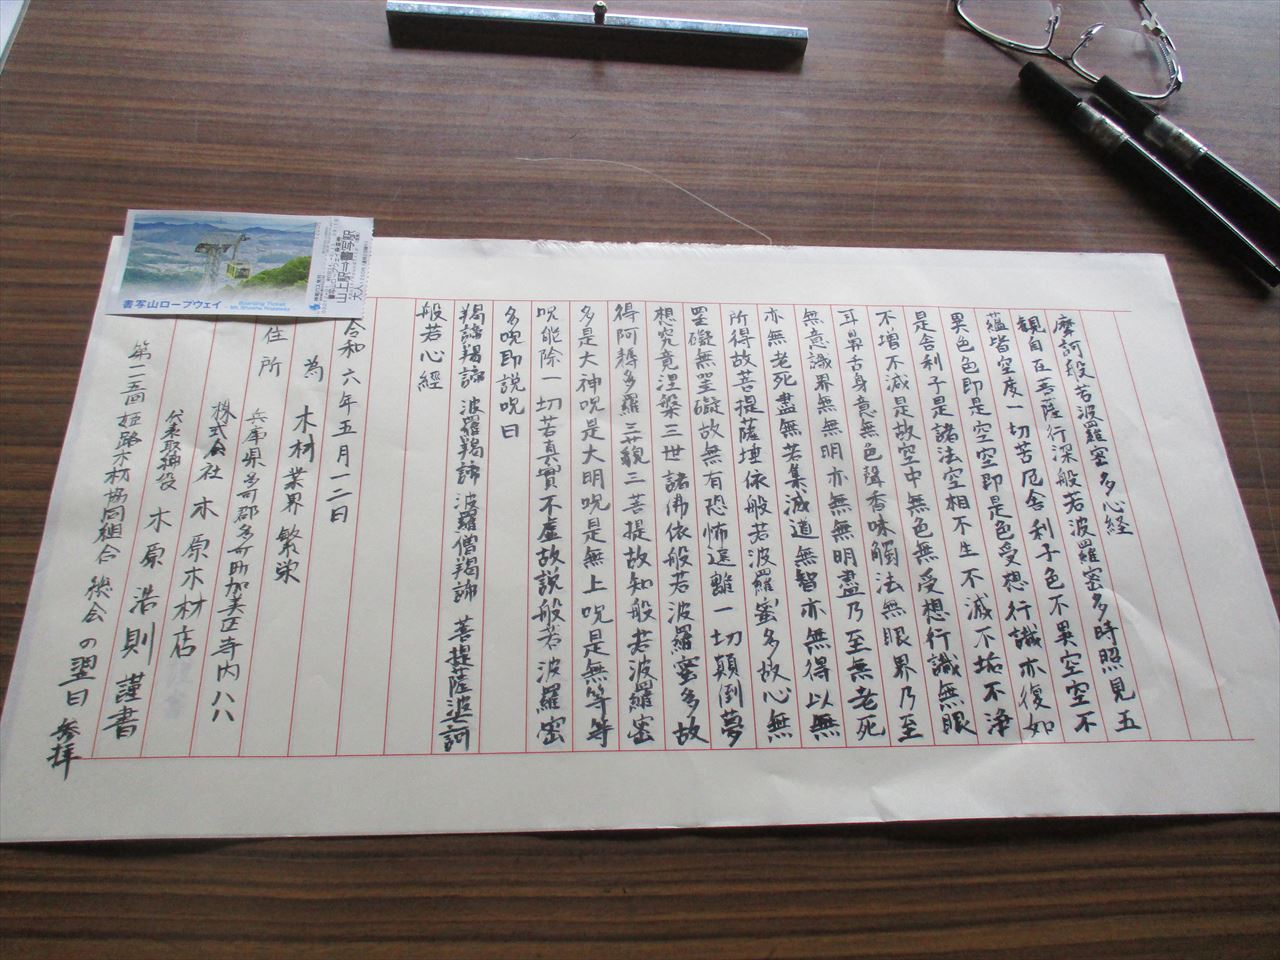 摩訶般若波羅蜜多心経
観自在菩薩行深般若波羅蜜多時照見五
蘊皆空度一切苦厄舎利子色不異空空不
異色色即是空空即是色受想行識亦復如
是舎利子是諸法空相不生不滅不垢不浄
不増不減是故空中無色無受想行識無眼
耳鼻舌身意無色聲香味觸法無眼界乃至
無意識界無無明亦無無明盡乃至無老死
亦無老死盡無苦集滅道無智亦無得以無
所得故菩提薩埵依般若波羅蜜多故心無
罣礙無罣礙故無有恐怖遠離一切顛倒夢
想究竟涅槃三世諸佛依般若波羅蜜多故
得阿耨多羅三藐三菩提故知般若波羅蜜
多是大神呪是大明呪是無上呪是無等等
呪能除一切苦真實不虚故説般若波羅蜜
多呪即説呪曰
羯諦羯諦 波羅羯諦 波羅僧羯諦 菩提薩婆訶
般若心經
令和六年五月一二日
為 木材業界 繁栄
住所 兵庫県多可郡多可町加美区寺内八八
株式会社 木原木材店
代表取締役 木原浩則 謹書
姫路木材協同組合 総会の翌日 参拝
書写山ロープウェイ
Boarding Ticket
Mt. Shosha Ropeway
山上駅⇒書写駅
大人